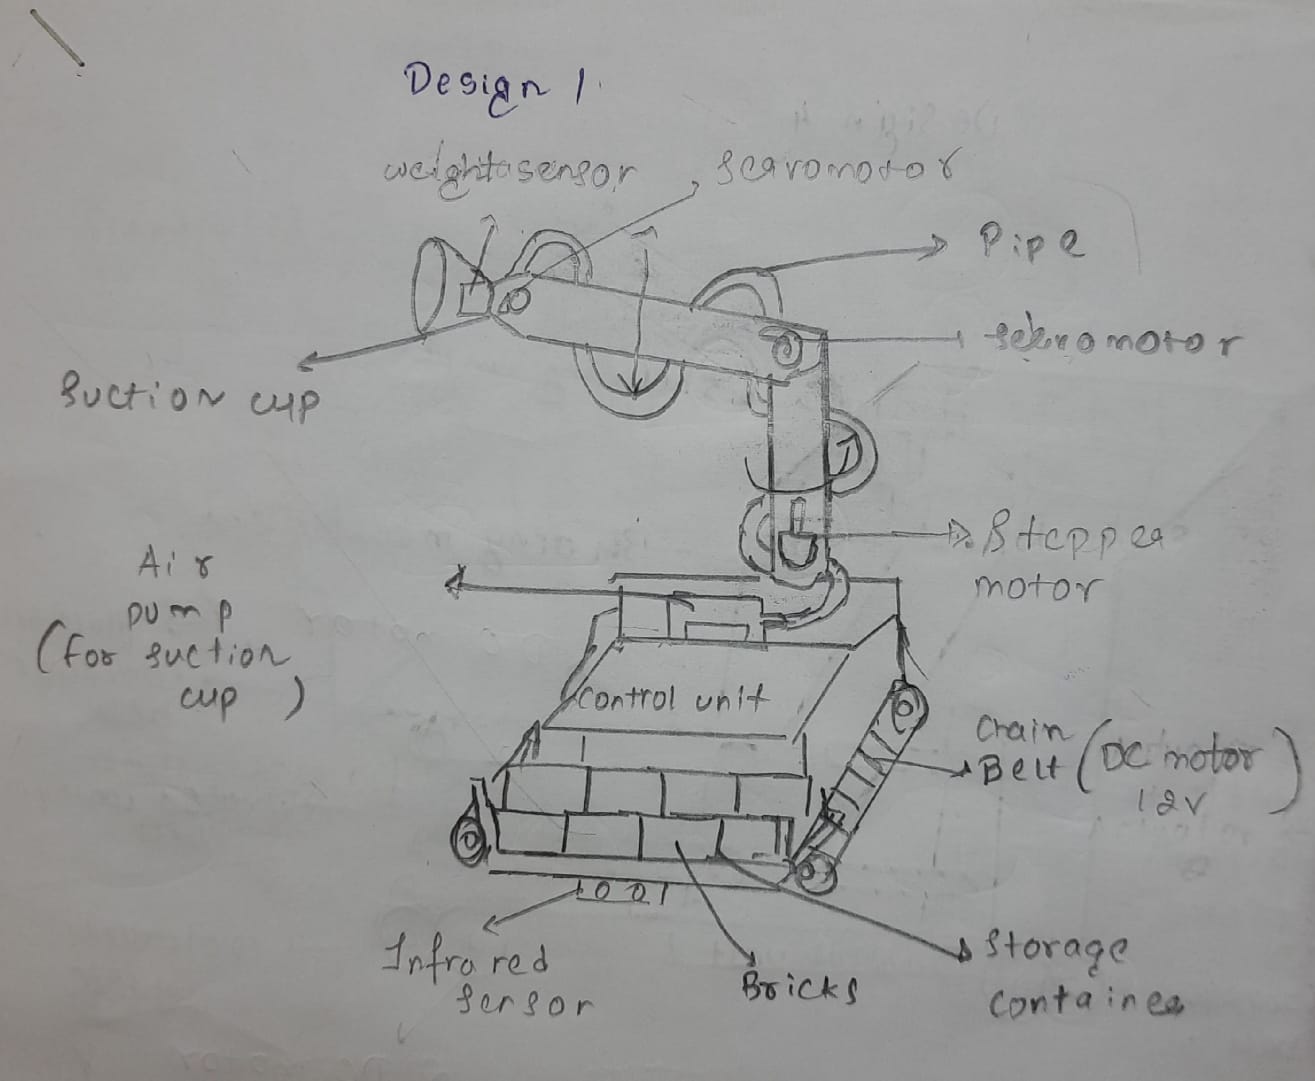 Design 1.
weight sensor
servomotor
Pipe
servomotor
Suction cup
Stepper
motor
Air
pump
(for suction
cup)
control unit
Chain
Belt (DC motor)
12V
Infrared
sensor
Bricks
Storage
container